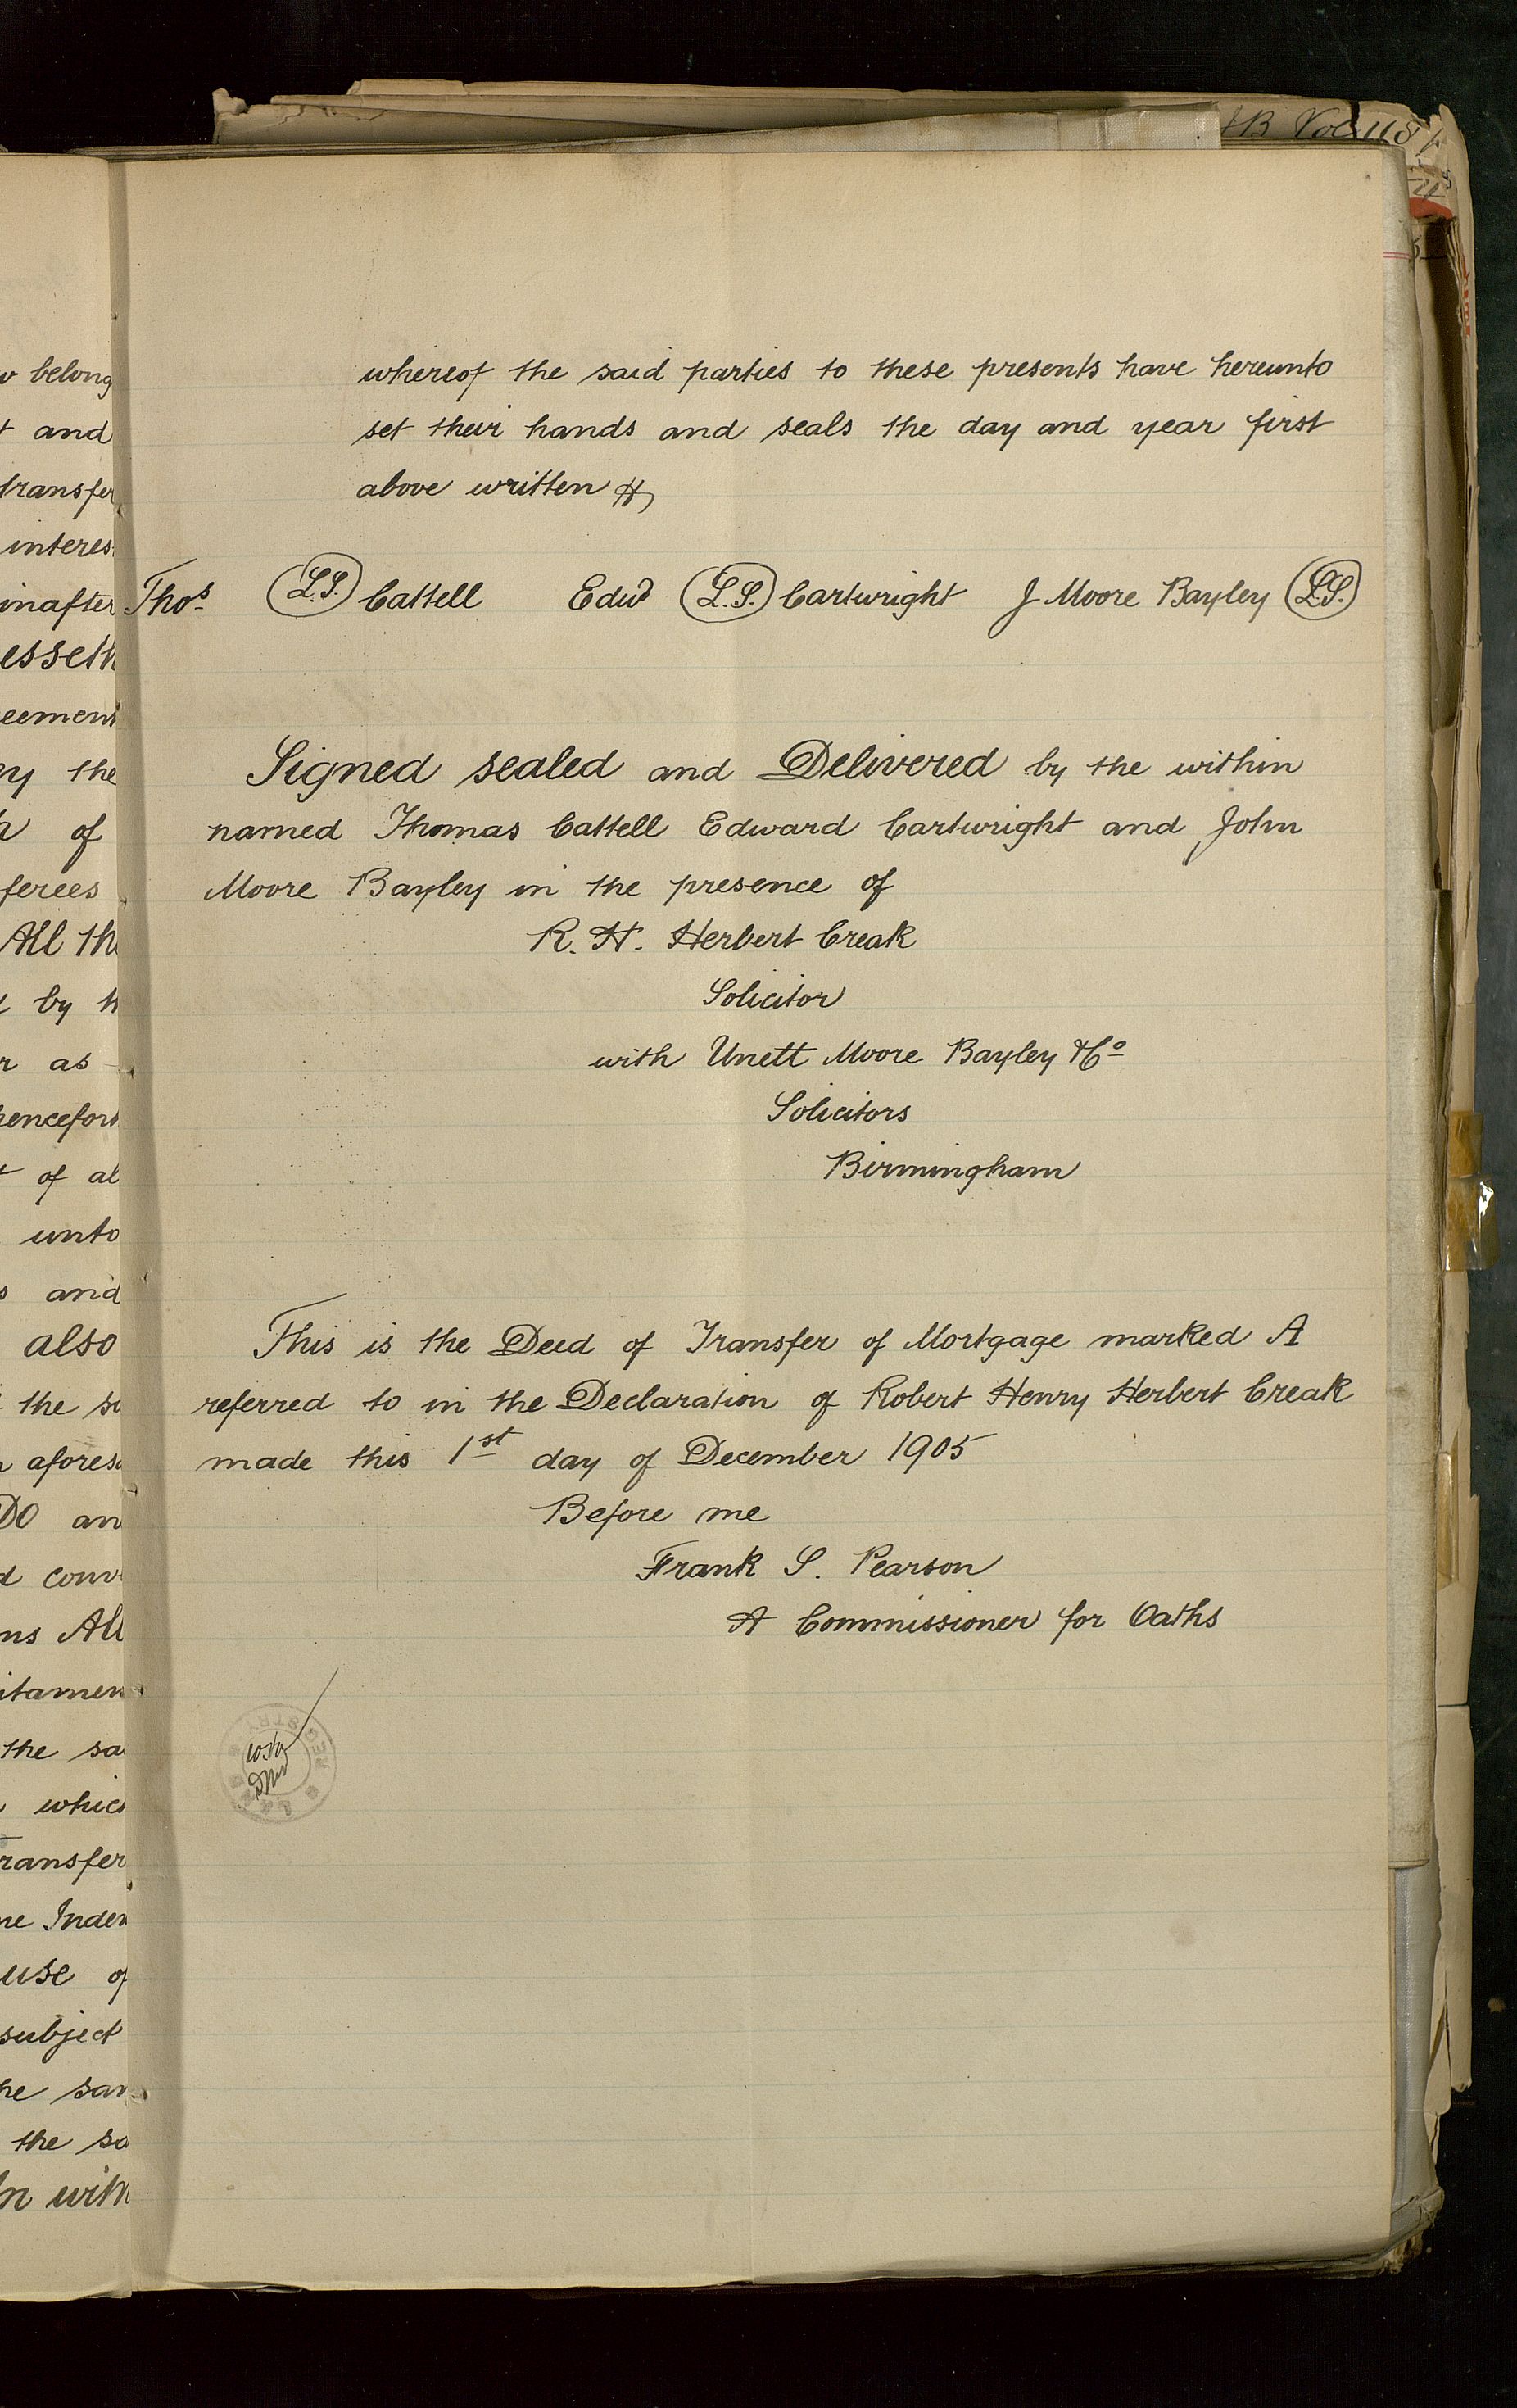 B Vol 118
whereof the said parties to these presents have hereunto
set their hands and seals the day and year first
above written
Thos. (L.S.) Cattell Edwd (L.S.) Cartwright J Moore Bayley (L.S.)
Signed sealed and Delivered by the within
named Thomas Cattell Edward Cartwright and John
Moore Bayley in the presence of
R. H. Herbert Creak
Solicitor
with Unett Moore Bayley & Co
Solicitors
Birmingham
This is the Deed of Transfer of Mortgage marked A
referred to in the Declaration of Robert Henry Herbert Creak
made this 1st day of December 1905
Before me
Frank S. Pearson
A Commissioner for Oaths
belong
and
transfer
interes
inafter
esseth
eement
the
of
ferees
All th
by h
as
hencefort
of al
unto
and
also
the sa
aforesa
DO an
conv
ns All
itamen
the sa
which
Transfer
Inden
use of
subject
sam
the sa
In witn